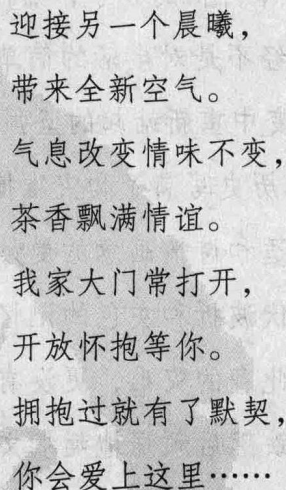 迎接另一个晨曦，
带来全新空气。
气息改变情味不变，
茶香飘满情谊。
我家大门常打开，
开放怀抱等你。
拥抱过就有了默契，
你会爱上这里……